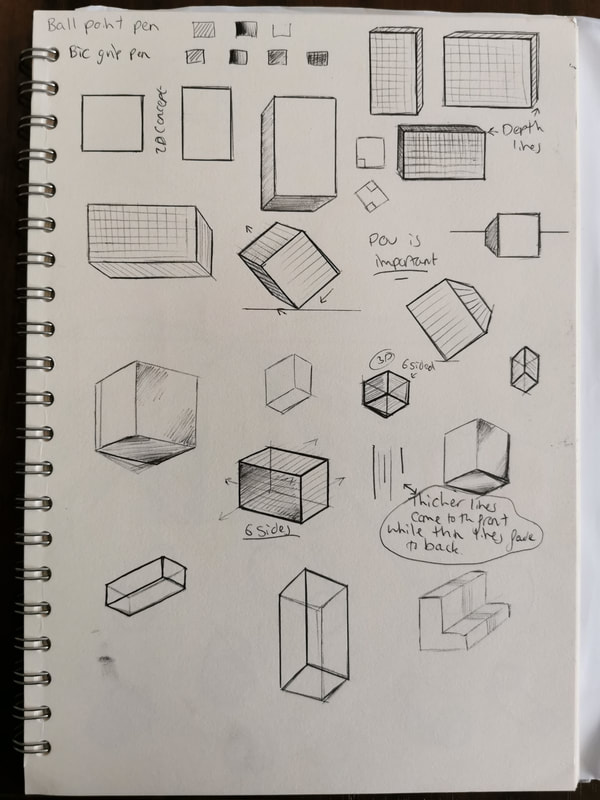 Ball point pen
Bic grip pen
2D Concept
Depth
lines
POV is
important
3D
6 sided
6 Sides
Thicker lines
come to th front
while thin lines fade
to back